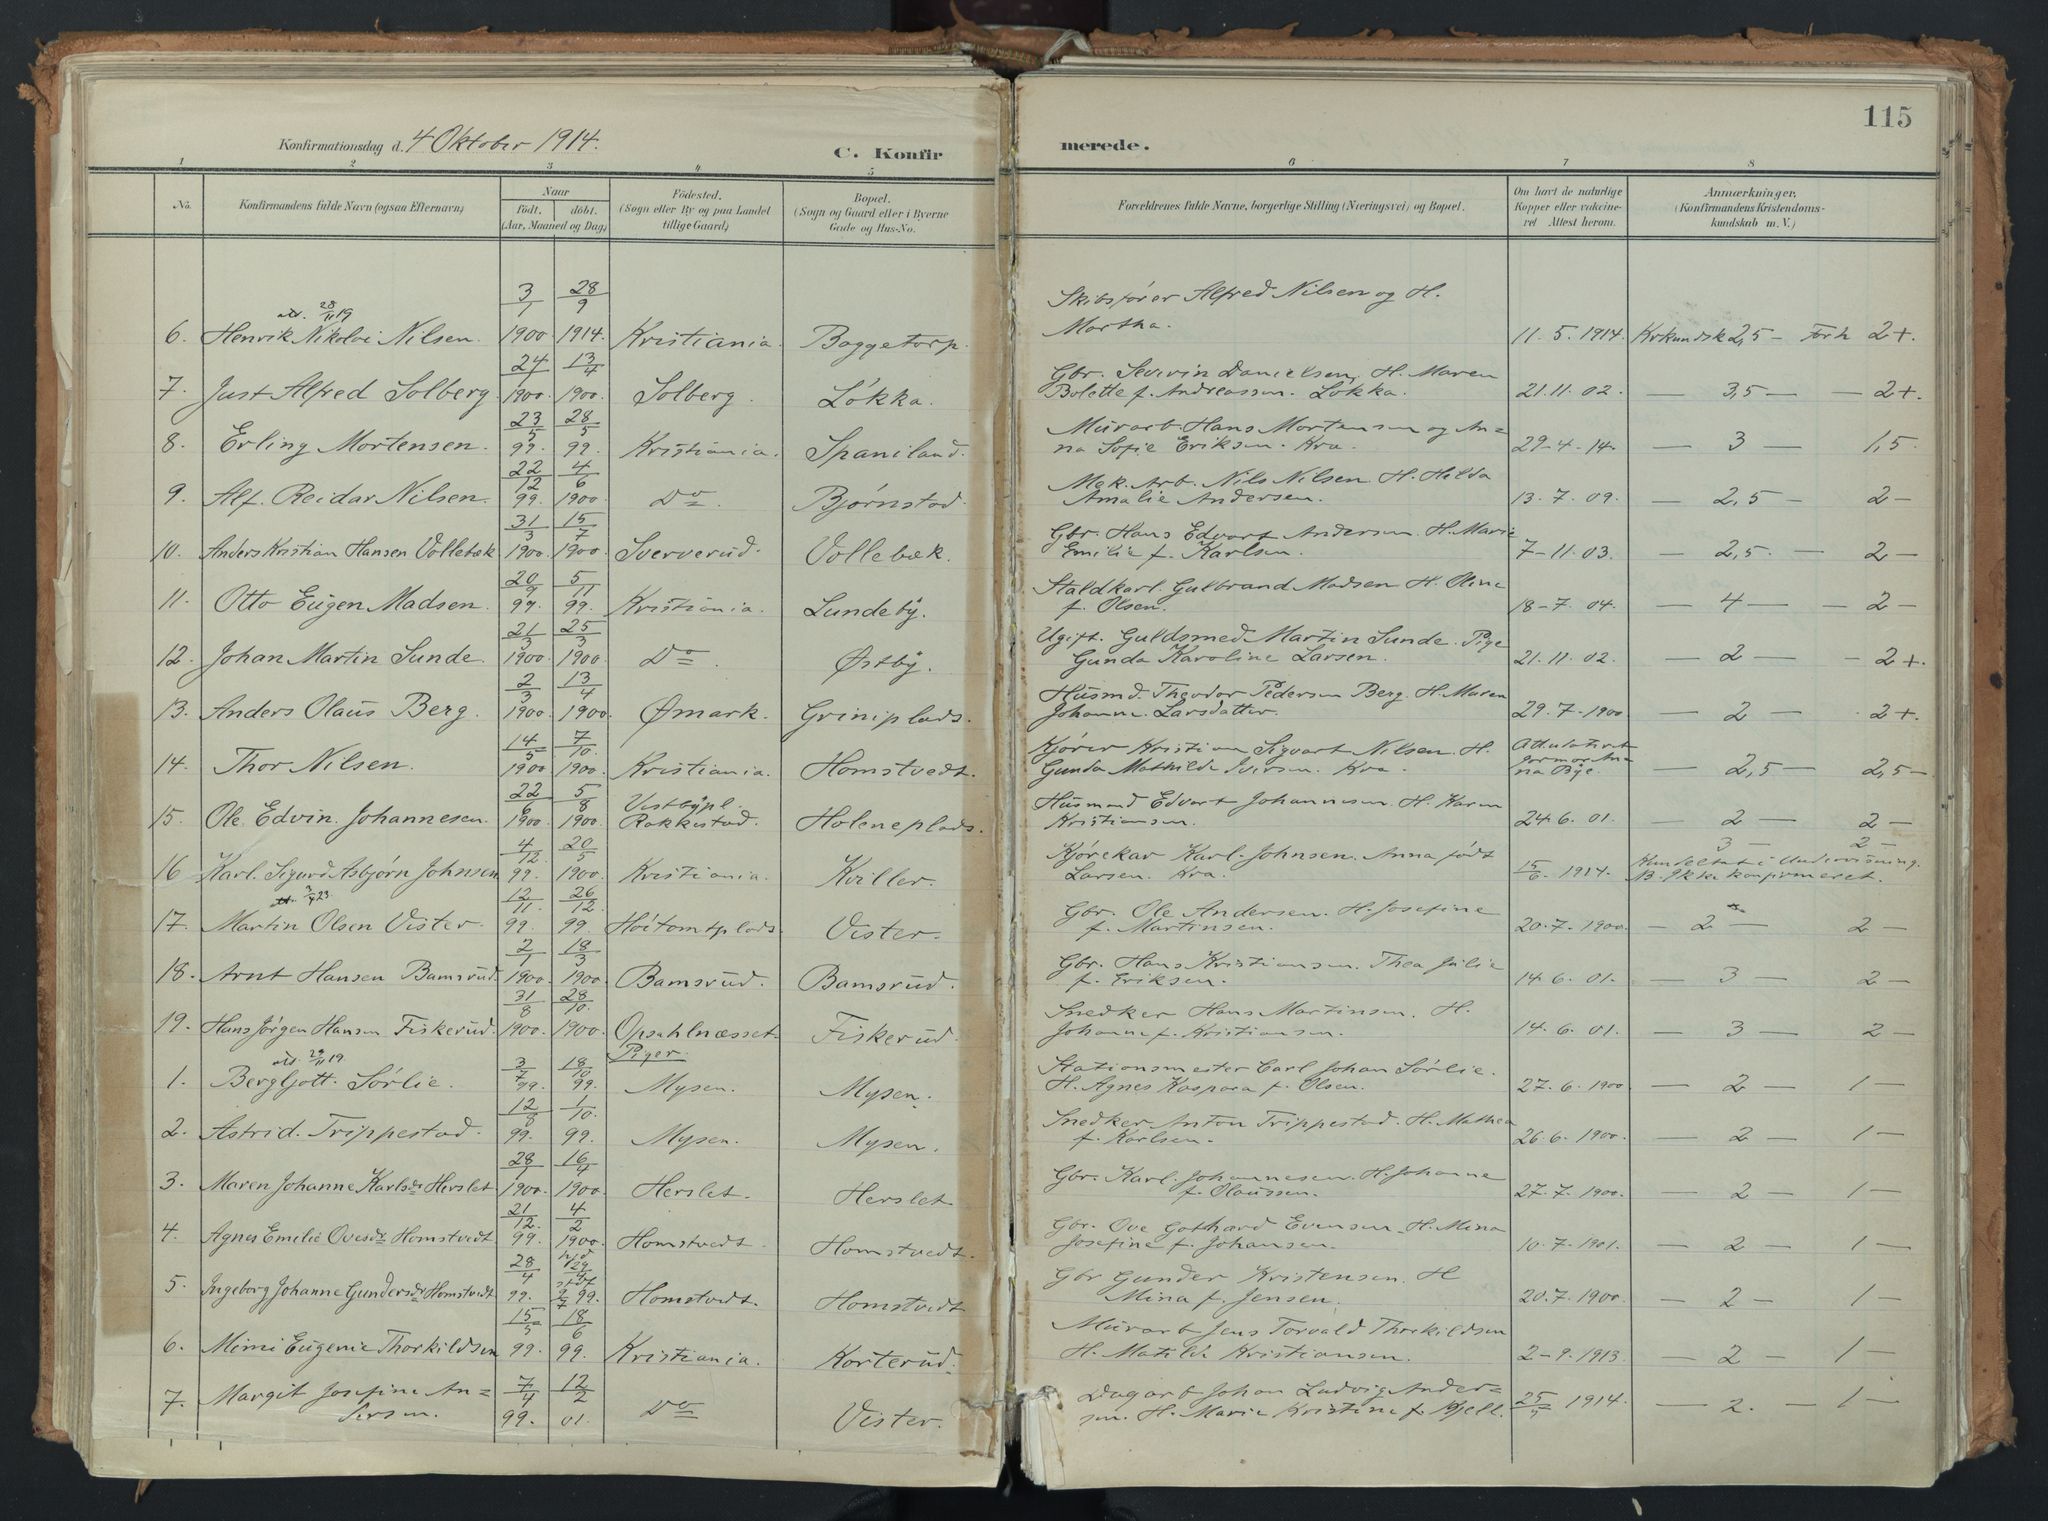 115
Konfirmationsdag d. 4 Oktober 1914.
C. Konfirmerede.
1 2 3 4 5 6 7 8
No. Konfirmandens fulde Navn (ogsaa Efternavn). Naar Födt. döbt. (Aar, Maaned og Dag) Födested. (Sogn eller By og paa Landet tillige Gaard) Bopæl. (Sogn og Gaard eller i Byerne Gade og Hus-No. Forældrenes fulde Navne, borgerlige Stilling (Næringsvei) og Bopæl. Om havt de naturlige Kopper eller vakcineret Attest herom. Anmærkninger. (Konfirmandens Kristendomskundskab m. V.)
att. 28/11 19
6. Henrik Nikolai Nilsen. 3/1 1900 28/9 1914. Kristiania. Baggetorp. Skibsfører Alfred Nilsen og H. Martha. 11. 5. 1914. Krkundsk 2,5 — Forh 2+.
7. Just Alfred Solberg. 24/1 1900. 13/4 1900. Solberg. Løkka. Gbr. Severin Danielsen. H. Maren Bolette f. Andreassen. Løkka. 21. 11. 02. — 3,5 — — 2+.
8. Erling Mortensen. 23/5 99. 28/5 99. Kristiania. Spaniland. Murarb. Hans Mortensen og Anna Sofie Eriksen. Kra. 29-4-14. — 3 — 1,5
9. Alf. Reidar Nilsen. 22/12 99. 4/6 1900. Do. Bjørnstad. Mek. Arb. Nils Nilsen. H. Hilda Amalie Andersen. 13. 7. 09. — 2,5 — 2 —
10. Anders Kristian Hansen Vollebæk 31/3 1900. 15/7 1900. Sververud. Vollebæk. Gbr. Hans Edvart Andersen. H. Marie Emilie f. Karlsen. 7-11. 03. — 2,5 — 2 —
11. Otto Eugen Madsen. 20/9 99. 5/11 99. Kristiania. Lundeby. Staldkarl. Gulbrand Madsen H. Oline f. Olsen. 18-7. 04. — 4 — — 2 —
12. Johan Martin Sunde. 21/3 1900. 25/3 1900. Do. Østby. Ugift. Guldsmed Martin Sunde. Pige Gunda Karoline Larsen. 21. 11. 02. — 2 — - 2+.
13. Anders Olaus Berg. 2/3 1900. 13/4 1900. Ømark. Griniplads. Husmd. Theodor Pedersen Berg. H. Maren Johanne Larsdatter. 29. 7-1900 — 2 — 2+
14. Thor Nilsen. 14/5 1900 7/10 1900. Kristiania. Homstvedt. Kjører Kristian Sigvart Nilsen. H. Gunda Mathilde Iversen. Kra. — 2,5 — 2,5 —
15. Ole Edvin Johannesen. 22/6 1900. 5/8 1900. Vestbypl. Rakkestad. Holeneplads. Husmand Edvart Johannesen. H. Karen Kristiansen. 24. 6. 01. — 2 — 2 —
16 Karl. Sigurd Asbjørn Johnsen 4/12 99. 20/5 1900. Kristiania. Kviller. Kjørekar Karl Johnsen. Anna født Larsen. Kra. 15/6. 1914. 3 — 2 — i Undervisning. Ikke konfirmeret.
att. 3/4 23.
17. Martin Olsen Vister. 12/11 99. 26/12 99. Høitomtplads. Vister. Gbr. Ole Andersen. H. Josefine f. Martinsen. 20. 7. 1900. — 2 — 2 —
18. Arnt Hansen Bamsrud. 2/1 1900 18/3 1900. Bamsrud. Bamsrud. Gbr. Hans Kristiansen. Thea Julie f. Eriksen. 14. 6. 01. — 3 — 2 —
19. Hans Jørgen Hansen Fiskerud. 31/8 1900. 28/10. 1900. Opsahlnæsset. Fiskerud. Snedker Hans Martinsen. H. Johanne f. Kristiansen. 14. 6. 01. — 3 — 2 —
Piger.
att. 29/11 19
1. Bergljott. Sørlie. 3/7 99. 18/10 99. Mysen. Mysen. Stationsmester Carl Johan Sørlie. H. Agnes Kaspara f. Olsen. 27. 6. 1900. — 2 — 1 —
2. Astrid. Trippestad. 12/8 99. 1/10. 99. Mysen. Mysen. Snedker Anton Trippestad. H. Mathea f. Karlsen. 26. 6. 1900. — 2 — 1 —
3. Maren Johanne Karlsdr Herslet 28/1 1900. 16/4 1900. Herslet. Herslet Gbr. Karl. Johannesen. H. Johanne f. Olaussen. 27. 7. 1900. — 2 — 1 —
4. Agnes Emilie Ovesdr Homstvedt 21/12. 99. 4/2 1900. Homstvedt. Homstvedt. Gbr. Ove Gothard Evensen. H. Mina Josefine f. Johansen. 10. 7. 1901. — 2 — 1 —
5. Ingeborg Johanne Gundersdr Homstvedt 28/4 99. hjd 29/4 stdf 2/7 99. Homstvedt. Homstvedt Gbr Gunder Kristensen. H Mina f. Jensen. 20. 7. 1900. — 2 — 1 —
6. Mimi Eugenie Thorkildsen 15/5 99. 18/6 99. Kristiania. Korterud. Murarb Jens Torvald Thorkildsen H. Matilde Kristiansen. 2-9. 1913. — 2 — 1 —
7. Margit Josefine Andersen. 7/4 99. 12/2 01. Do Vister. Dagarb Johan Ludvig Andersen. H. Marie Kristine f. Kjell. 1914. — 2. — 1 —